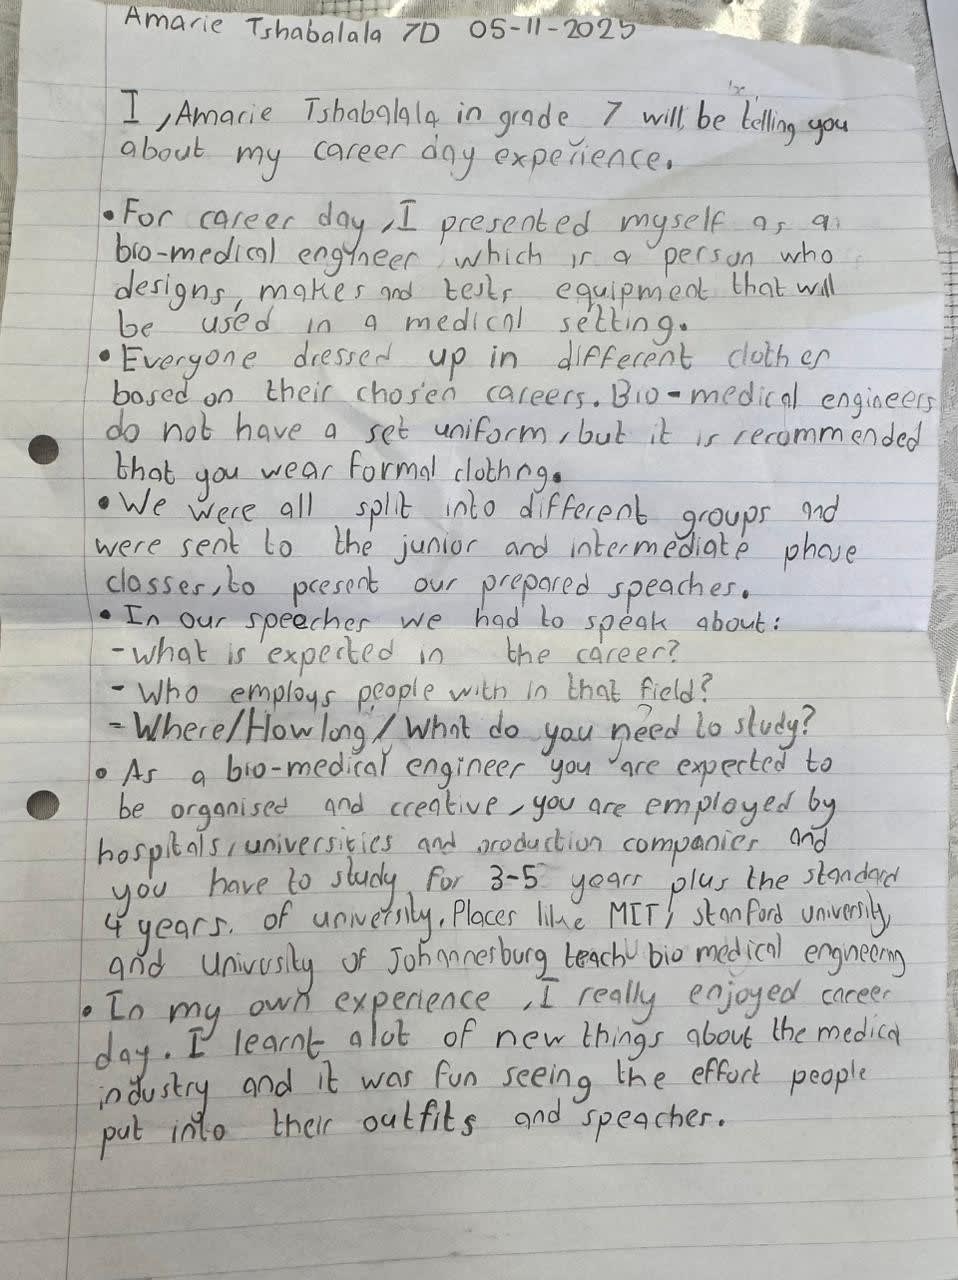 Amarie Tshabalala 7D 05-11-2025
I, Amarie Tshabalala in grade 7 will be telling you
about my career day experience.
• For career day, I presented myself as a
bio-medical engineer which is a person who
designs, makes and tests equipment that will
be used in a medical setting.
• Everyone dressed up in different clothes
based on their chosen careers. Bio-medical engineers
do not have a set uniform, but it is recommended
that you wear formal clothng.
• We were all split into different groups and
were sent to the junior and intermediate phase
classes, to present our prepared speaches.
• In our speeches we had to speak about:
- What is expected in the career?
- Who employs people with in that field?
- Where/How long/What do you need to study?
• As a bio-medical engineer you are expected to
be organised and creative, you are employed by
hospitals, universities and production companies and
you have to study for 3-5 years plus the standard
4 years. of university. Places like MIT, stanford university,
and University of Johannesburg teach bio medical engineering
• In my own experience, I really enjoyed career
day. I learnt alot of new things about the medical
industry and it was fun seeing the effort people
put into their outfits and speaches.